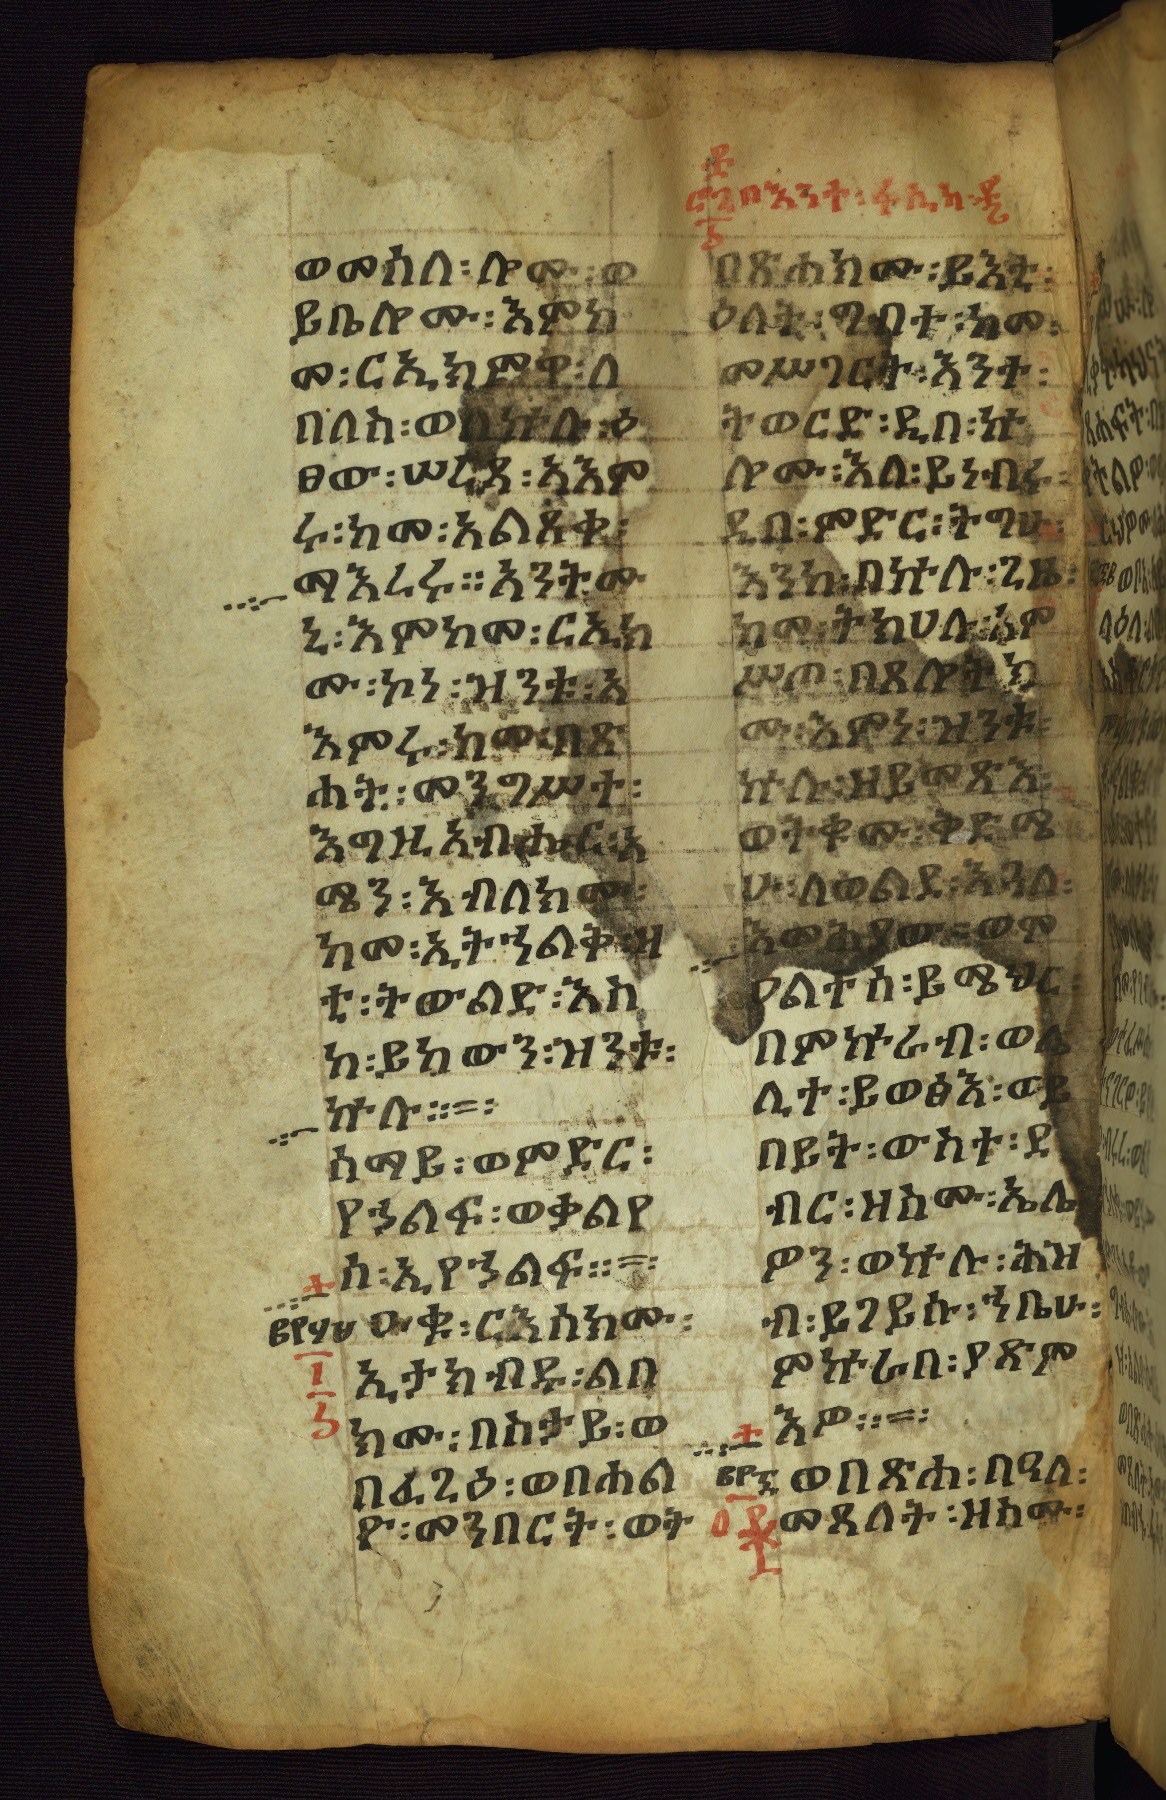 በእንተ፡ ፋሲካ
ወመሰለ፡ሎሙ፡ወ
ይቤሎሙ፡እምከ
መ፡ርኢክምዋ፡ለ
በለስ፡ወለኵሉ፡ዕ
ፀው፡ሠረጸ፡አእም
ሩ፡ከመ፡አልጸቀ፡
ማእረሩ።አንትሙ
ኒ፡እምከመ፡ርኢክ
ሙ፡ኮነ፡ዝንቱ፡አ
እምሩ፡ከመ፡በጽ
ሐት፡መንግሥተ፡
እግዚአብሔር፡አ
ሜን፡እብለክሙ፡
ከመ፡ኢትኀልቅ፡ዛ
ቲ፡ትውልድ፡እስ
ከ፡ይከውን፡ዝንቱ፡
ኵሉ።=፡
ሰማይ፡ወምድር፡
የኀልፍ፡ወቃልየ
ሰ፡ኢየኀልፍ።=፡
ዑቁ፡ርእሰክሙ፡
ኢታክብዱ፡ልበ
ክሙ፡በስታይ፡ወ
በፈጊዕ፡ወበሐል
ዮ፡መንበርት፡ወት
በጽሐክሙ፡ይእቲ፡
ዕለት፡ግብተ፡ከመ፡
መሥገርት፡እንተ፡
ትወርድ፡ዲበ፡ኵ
ሎሙ፡እለ፡ይነብሩ፡
ዲበ፡ምድር፡ትግሁ፡
እንከ፡በኵሉ፡ጊዜ፡
ከመ፡ትክሀሉ፡አም
ሥጦ፡በጸሎትክ
ሙ፡እምነ፡ዝንቱ፡
ኵሉ፡ዘይመጽእ፡
ወትቁሙ፡ቅድሜ
ሁ፡ለወልደ፡እጓለ፡
እመሕያው።ወመ
ዐልተሰ፡ይሜህር፡
በምኵራብ፡ወሌ
ሊተ፡ይወፅእ፡ወይ
በይት፡ውስተ፡ደ
ብር፡ዘስሙ፡ኤሌ
ዎን፡ወኵሉ፡ሕዝ
ብ፡ይገይሱ፡ኀቤሁ፡
ምኵራበ፡ያጽም
እዎ።=፡
ወበጽሐ፡በዓለ፡
መጸለት፡ዘስሙ፡